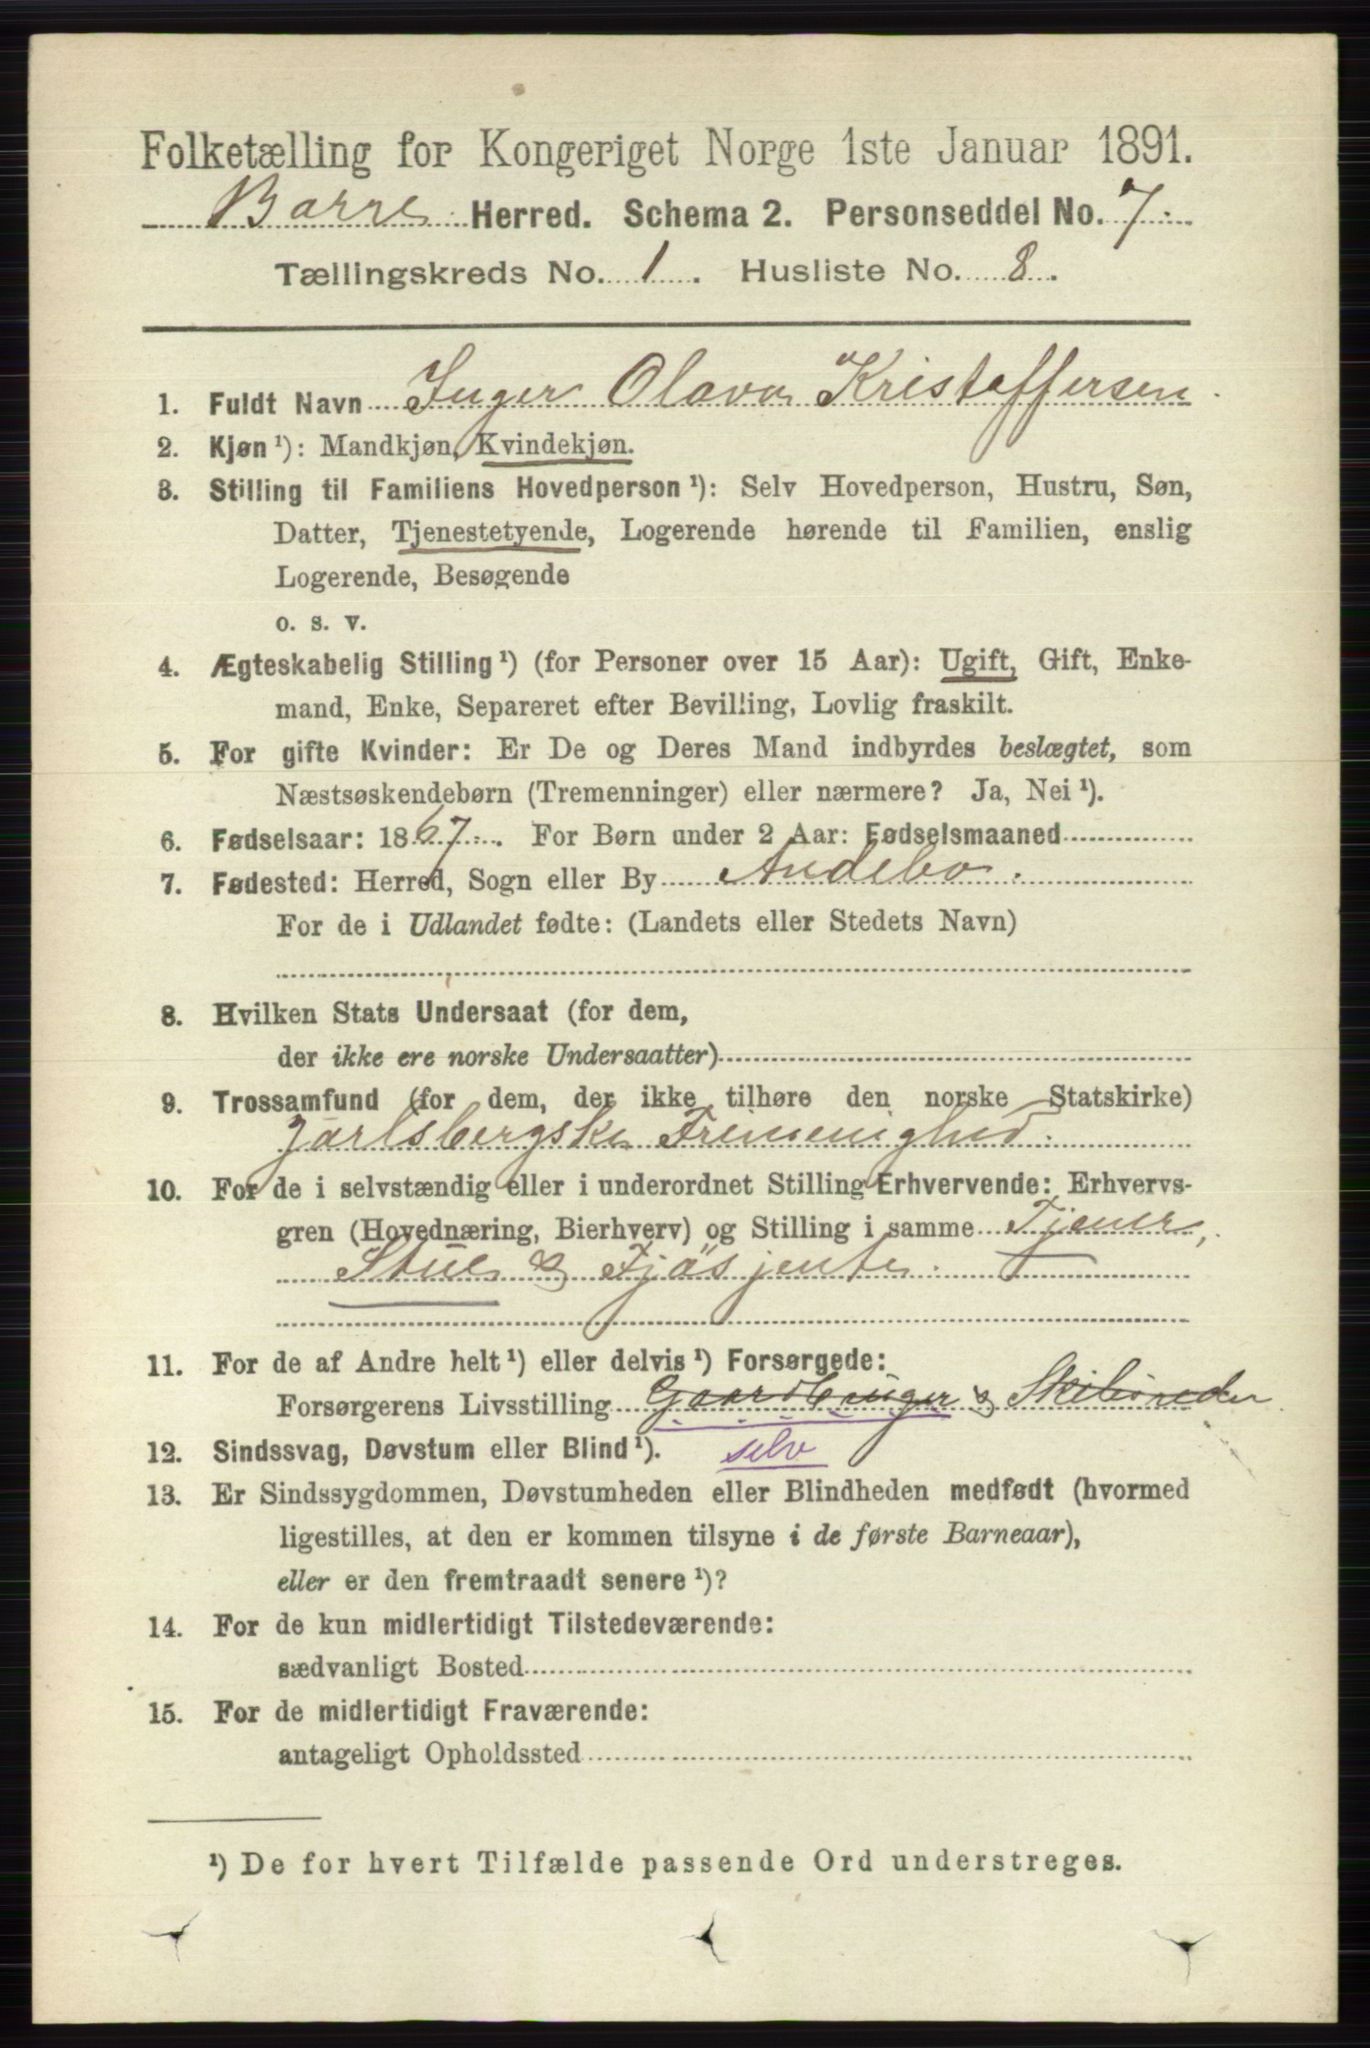 Folketælling for Kongeriget Norge 1ste Januar 1891.
Borre Herred. Schema 2. Personseddel No. 7.
Tællingskreds No. 1. Husliste No. 8.
1. Fuldt Navn Inger Olava Kristoffersen.
2. Kjøn¹): Mandkjøn, Kvindekjøn.
3. Stilling til Familiens Hovedperson¹): Selv Hovedperson, Hustru, Søn,
Datter, Tjenestetyende, Logerende hørende til Familien, enslig
Logerende, Besøgende
o. s. v.
4. Ægteskabelig Stilling¹) (for Personer over 15 Aar): Ugift, Gift, Enke-
mand, Enke, Separeret efter Bevilling, Lovlig fraskilt.
5. For gifte Kvinder: Er De og Deres Mand indbyrdes beslægtet, som
Næstsøskendebørn (Tremenninger) eller nærmere? Ja, Nei¹).
6. Fødselsaar: 1867. For Børn under 2 Aar: Fødselsmaaned
7. Fødested: Herred, Sogn eller By Andebo.
For de i Udlandet fødte: (Landets eller Stedets Navn)
8. Hvilken Stats Undersaat (for dem,
der ikke ere norske Undersaatter)
9. Trossamfund (for dem, der ikke tilhøre den norske Statskirke)
Jarlsbergske Frimenighed.
10. For de i selvstændig eller i underordnet Stilling Erhvervende: Erhvervs-
gren (Hovednæring, Bierhverv) og Stilling i samme Tjener,
Stue & Fjøsjente.
11. For de af Andre helt¹) eller delvis¹) Forsørgede:
Forsørgerens Livsstilling Gaardbruger & Skibsreder
12. Sindssvag, Døvstum eller Blind¹). selv
13. Er Sindssygdommen, Døvstumheden eller Blindheden medfødt (hvormed
ligestilles, at den er kommen tilsyne i de første Barneaar),
eller er den fremtraadt senere¹)?
14. For de kun midlertidigt Tilstedeværende:
sædvanligt Bosted
15. For de midlertidigt Fraværende:
antageligt Opholdssted
¹) De for hvert Tilfælde passende Ord understreges.